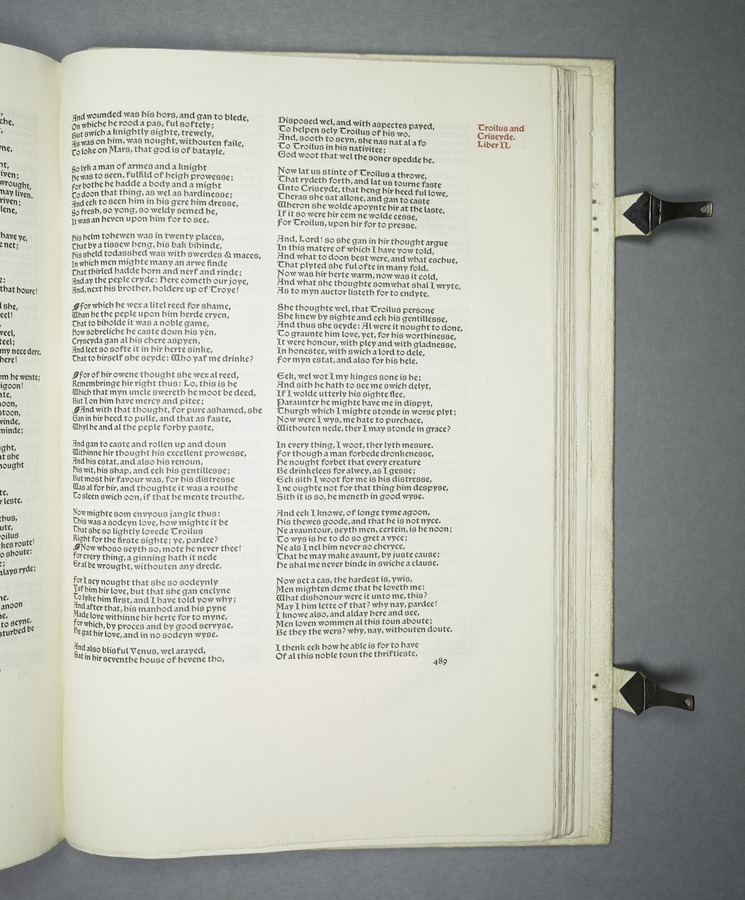 che.
yne.
ht,
iven;
wrought,
nay liven.
riven;
lene,
have ye,
net;
that houre!
she,
eel!
weel,
teel;
my nece dere.
here!
em he wente;
igoon!
oon,
stoon,
winde,
minde;
ught,
at she
nought
te,
r leste.
thus,
ute,
oilus
kes route!
o shoute:
alays ryde;
ne.
anoon
to seyne,
sturbed be
And wounded was his hors, and gan to blede,
On whiche he rood a pas, ful softely;
But swich a knightly sighte, trewely,
As was on him, was nought, withouten faile,
To loke on Mars, that god is of batayle.
So lyk a man of armes and a knight
He was to seen, fulfild of heigh prowesse;
For bothe he hadde a body and a might
To doon that thing, as wel as hardinesse;
And eek to seen him in his gere him dresse,
So fresh, so yong, so weldy semed he,
It was an heven upon him for to see.
His helm tohewen was in twenty places,
That by a tissew heng, his bak bihinde,
His sheld todasshed was with swerdes & maces,
In which men mighte many an arwe finde
That thirled hadde horn and nerf and rinde;
And ay the peple cryde: Here cometh our joye,
And, next his brother, holdere up of Troye!
For which he wex a litel reed for shame,
Whan he the peple upon him herde cryen,
That to biholde it was a noble game,
How sobreliche he caste doun his yën.
Cryseyda gan al his chere aspyen,
And leet so softe it in hir herte sinke,
That to hirself she seyde: Who yaf me drinke?
For of hir owene thought she wex al reed,
Remembringe hir right thus: Lo, this is he
Which that myn uncle swereth he moot be deed,
But I on him have mercy and pitee;
And with that thought, for pure ashamed, she
Gan in hir heed to pulle, and that as faste,
Whyl he and al the peple forby paste,
And gan to caste and rollen up and doun
Withinne hir thought his excellent prowesse,
And his estat, and also his renoun,
His wit, his shap, and eek his gentillesse;
But most hir favour was, for his distresse
Was al for hir, and thoughte it was a routhe
To sleen swich oon, if that he mente trouthe.
Now mighte som envyous jangle thus:
This was a sodeyn love, how mighte it be
That she so lightly lovede Troilus
Right for the firste sighte; ye, pardee?
Now whoso seyth so, mote he never thee!
For every thing, a ginning hath it nede
Er al be wrought, withouten any drede.
For I sey nought that she so sodeynly
Yaf him hir love, but that she gan enclyne
To lyke him first, and I have told yow why;
And after that, his manhod and his pyne
Made love withinne hir herte for to myne,
For which, by proces and by good servyse,
He gat hir love, and in no sodeyn wyse.
And also blisful Venus, wel arayed,
Sat in hir seventhe house of hevene tho,
Disposed wel, and with aspectes payed,
To helpen sely Troilus of his wo.
And, sooth to seyn, she nas nat al a fo
To Troilus in his nativitee;
God woot that wel the soner spedde he.
Now lat us stinte of Troilus a throwe,
That rydeth forth, and lat us tourne faste
Unto Criseyde, that heng hir heed ful lowe,
Theras she sat allone, and gan to caste
Wheron she wolde apoynte hir at the laste,
If it so were hir eem ne wolde cesse,
For Troilus, upon hir for to presse.
And, Lord! so she gan in hir thought argue
In this matere of which I have yow told,
And what to doon best were, and what eschue,
That plyted she ful ofte in many fold.
Now was hir herte warm, now was it cold,
And what she thoughte somwhat shal I wryte,
As to myn auctor listeth for to endyte.
She thoughte wel, that Troilus persone
She knew by sighte and eek his gentillesse,
And thus she seyde: Al were it nought to done,
To graunte him love, yet, for his worthinesse,
It were honour, with pley and with gladnesse,
In honestee, with swich a lord to dele,
For myn estat, and also for his hele.
Eek, wel wot I my kinges sone is he;
And sith he hath to see me swich delyt,
If I wolde utterly his sighte flee,
Paraunter he mighte have me in dispyt,
Thurgh which I mighte stonde in worse plyt;
Now were I wys, me hate to purchace,
Withouten nede, ther I may stonde in grace?
In every thing, I woot, ther lyth mesure.
For though a man forbede dronkenesse,
He nought forbet that every creature
Be drinkelees for alwey, as I gesse;
Eek sith I woot for me is his distresse,
I ne oughte not for that thing him despyse,
Sith it is so, he meneth in good wyse.
And eek I knowe, of longe tyme agoon,
His thewes goode, and that he is not nyce.
Ne avauntour, seyth men, certein, is he noon;
To wys is he to do so gret a vyce;
Ne als I nel him never so cheryce,
That he may make avaunt, by juste cause;
He shal me never binde in swiche a clause.
Now set a cas, the hardest is, ywis,
Men mighten deme that he loveth me:
What dishonour were it unto me, this?
May I him lette of that? why nay, pardee!
I knowe also, and alday here and see,
Men loven wommen al this toun aboute;
Be they the wers? why, nay, withouten doute.
I thenk eek how he able is for to have
Of al this noble toun the thriftieste,
489
Troilus and
Criseyde.
Liber II.